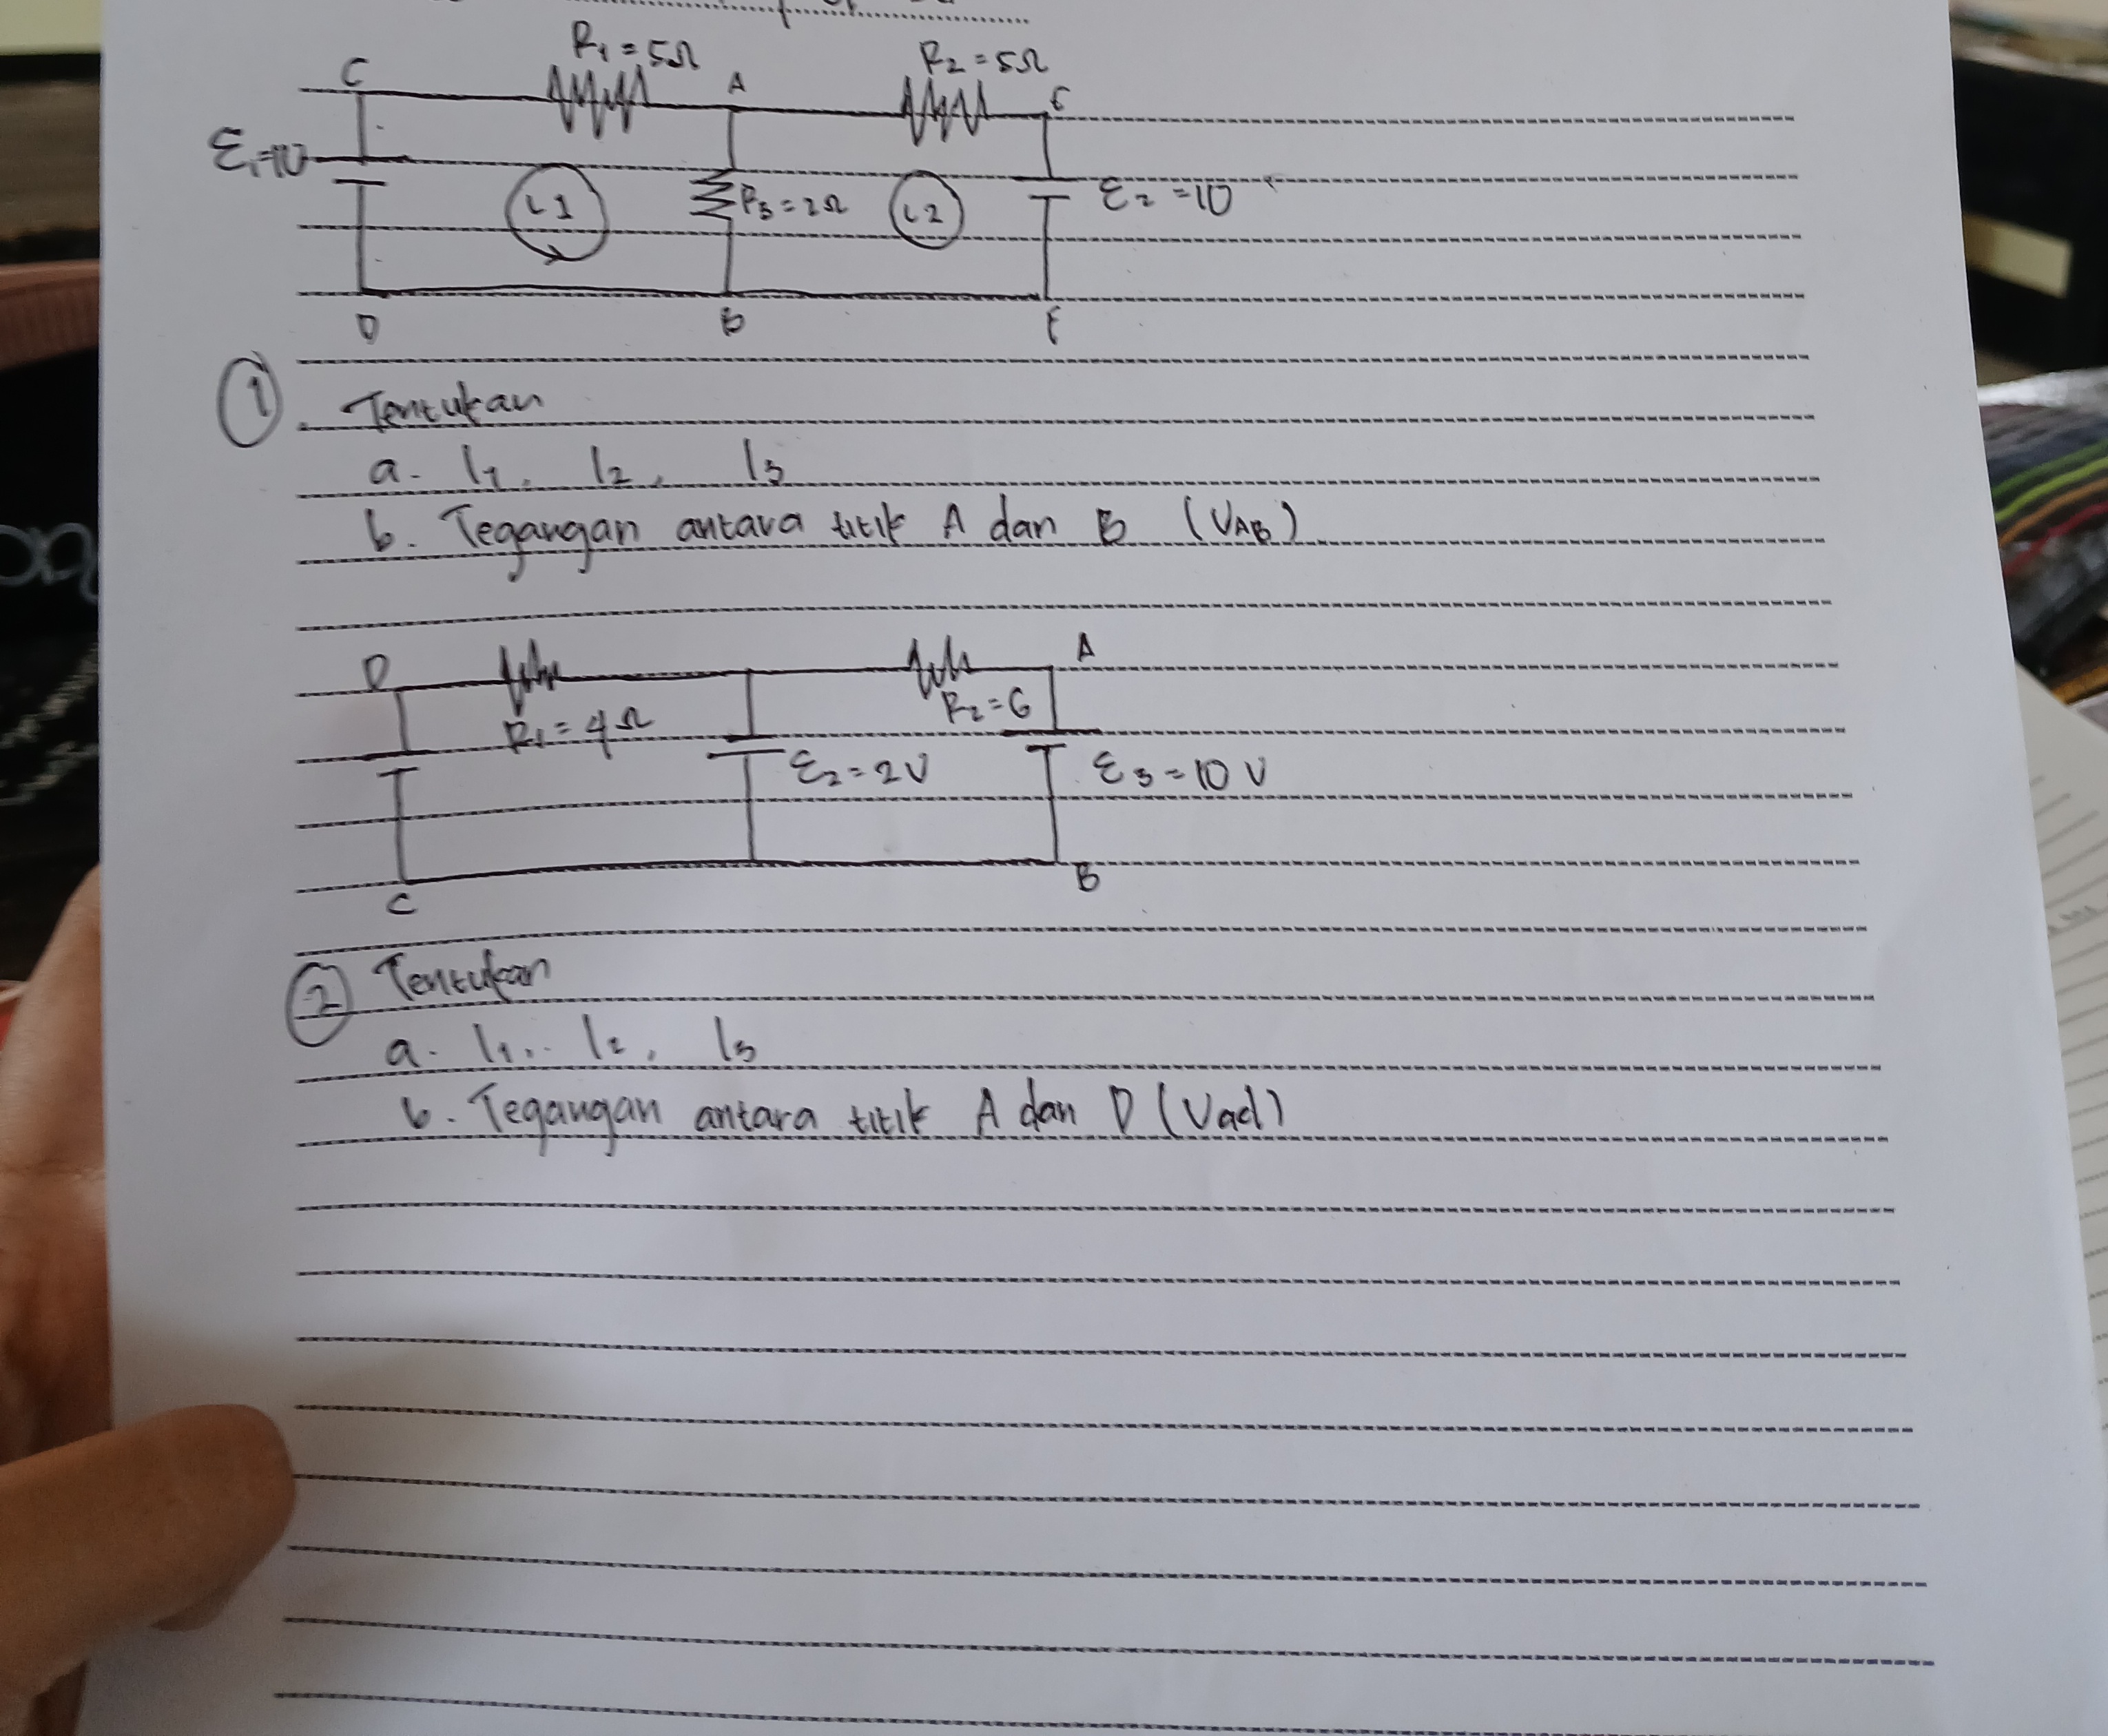 R₁ = 5Ω
R₂ = 5Ω
C
A
E
ε₁=10
L1
R₃ = 2Ω
L2
ε₂ = 10
D
B
F
1. Tentukan
a. I₁, I₂, I₃
b. Tegangan antara titik A dan B (VAB)
D
A
R₁ = 4Ω
R₂ = 6
ε₂ = 2V
ε₃ = 10 V
C
B
2 Tentukan
a. I₁, I₂, I₃
b. Tegangan antara titik A dan D (Vad)